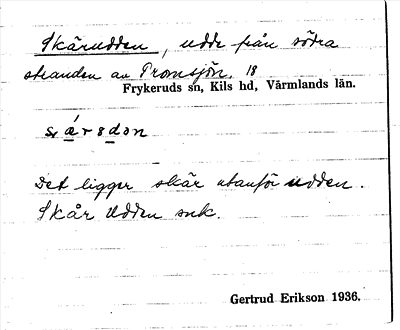 Skärudden, udde från södra
stranden av Tromsjön. 18
Frykeruds sn, Kils hd, Värmlands län.
Det ligger skär utanför udden.
Skär Udden enk.
Gertrud Erikson 1936.